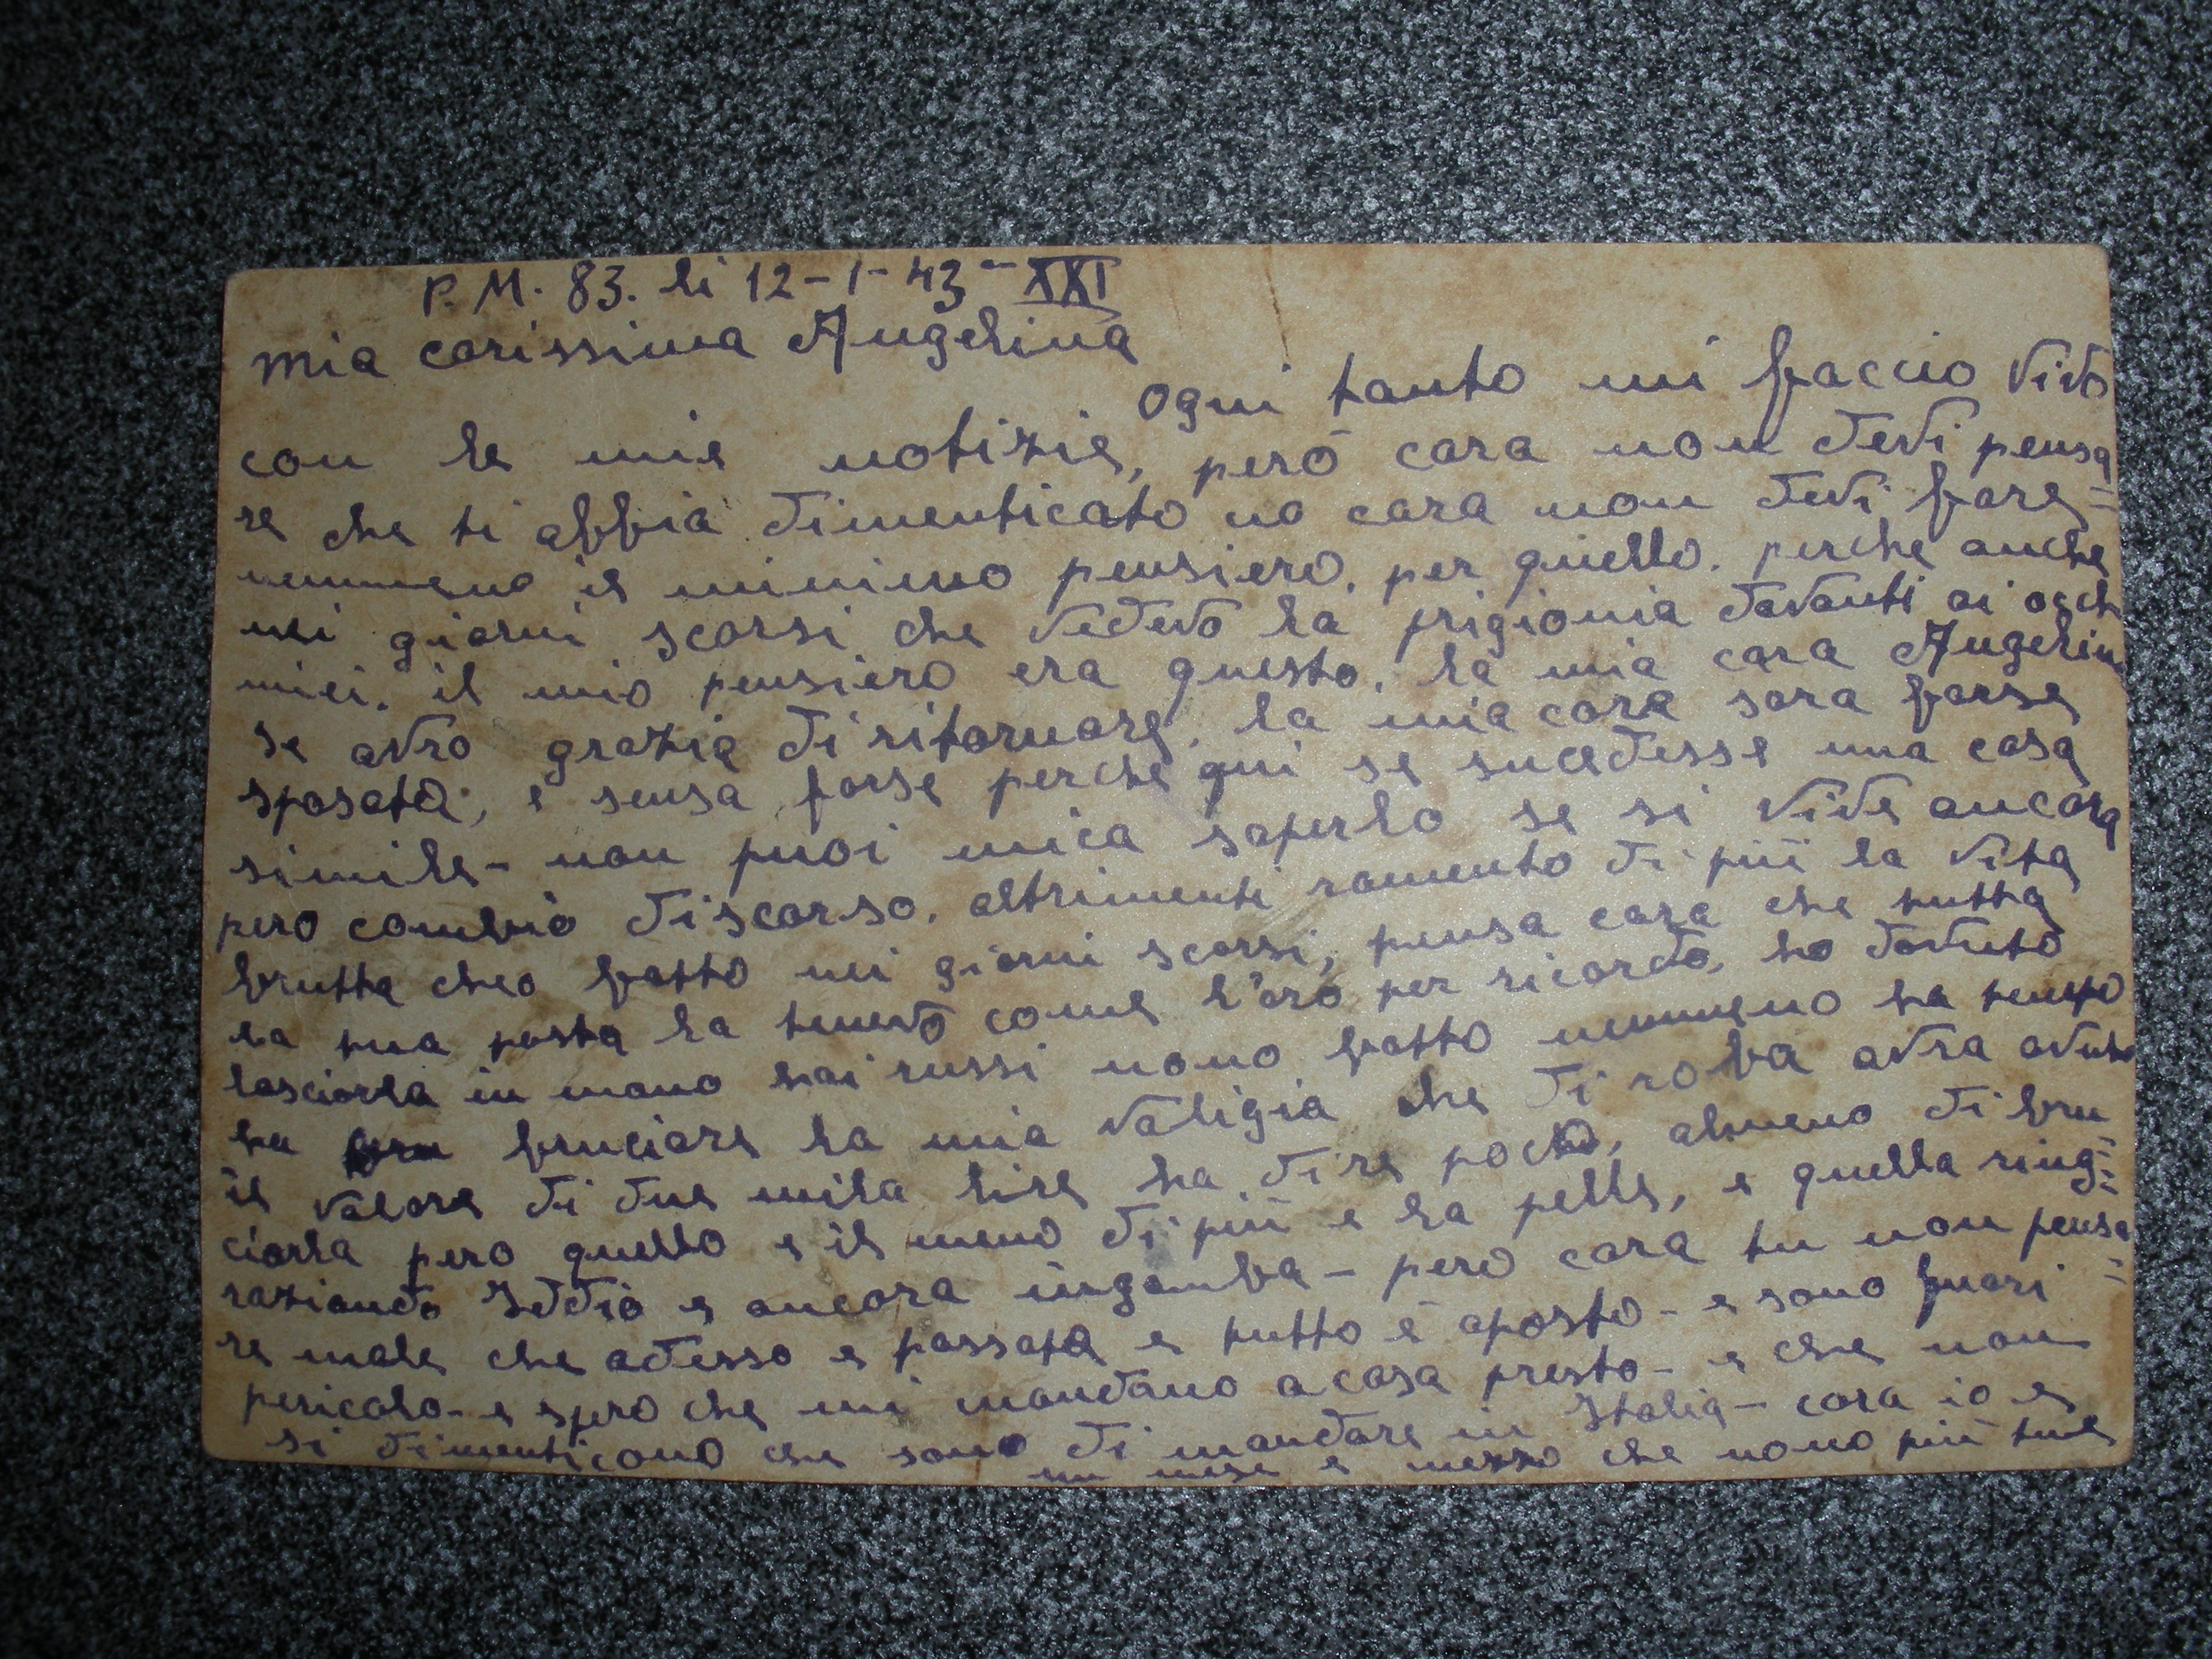 P. M. 83. li 12-1-43-XXI
mia carissima Angelina
Ogni tanto mi faccio vivo
con le mie notizie, però cara non devi pensa
re che ti abbia dimenticato no cara non devi fare=
nemmeno il minimo pensiero. per quello. perche anche
nei giorni scorsi che vedevo la prigionia davanti ai occh
miei. il mio pensiero era questo. la mia cara Angelin
se avro grazia di ritornare, la mia cara sara forse
sposata, e sensa forse perche qui se sucedesse una cosa
simile- non puoi mica saperlo se si vive ancora
pero cambio discorso. altrimenti ramento di più la vita
brutta cheo fatto nei giorni scorsi, pensa cara che tutta
la tua posta la tenevo come l'oro per ricordo, ho dovuto
lasciarla in mano hai russi nono fatto nemmeno ha tempo
ha bruciare la mia valigia che di roba avra avuto
il valore di due mila lire ha dire poco, almeno di bru=
ciarla pero quello e il meno di più e la pelle, e quella ring=
raziando Iddio e ancora ingamba- pero cara tu non pensa=
re male che adesso e passata e tutto è aposto- e sono fuori
pericolo- e spero che mi mandano a casa presto- e che non
si dimenticono che sono di mandare in Italia- cara io e
un mese e mezzo che nono più tue